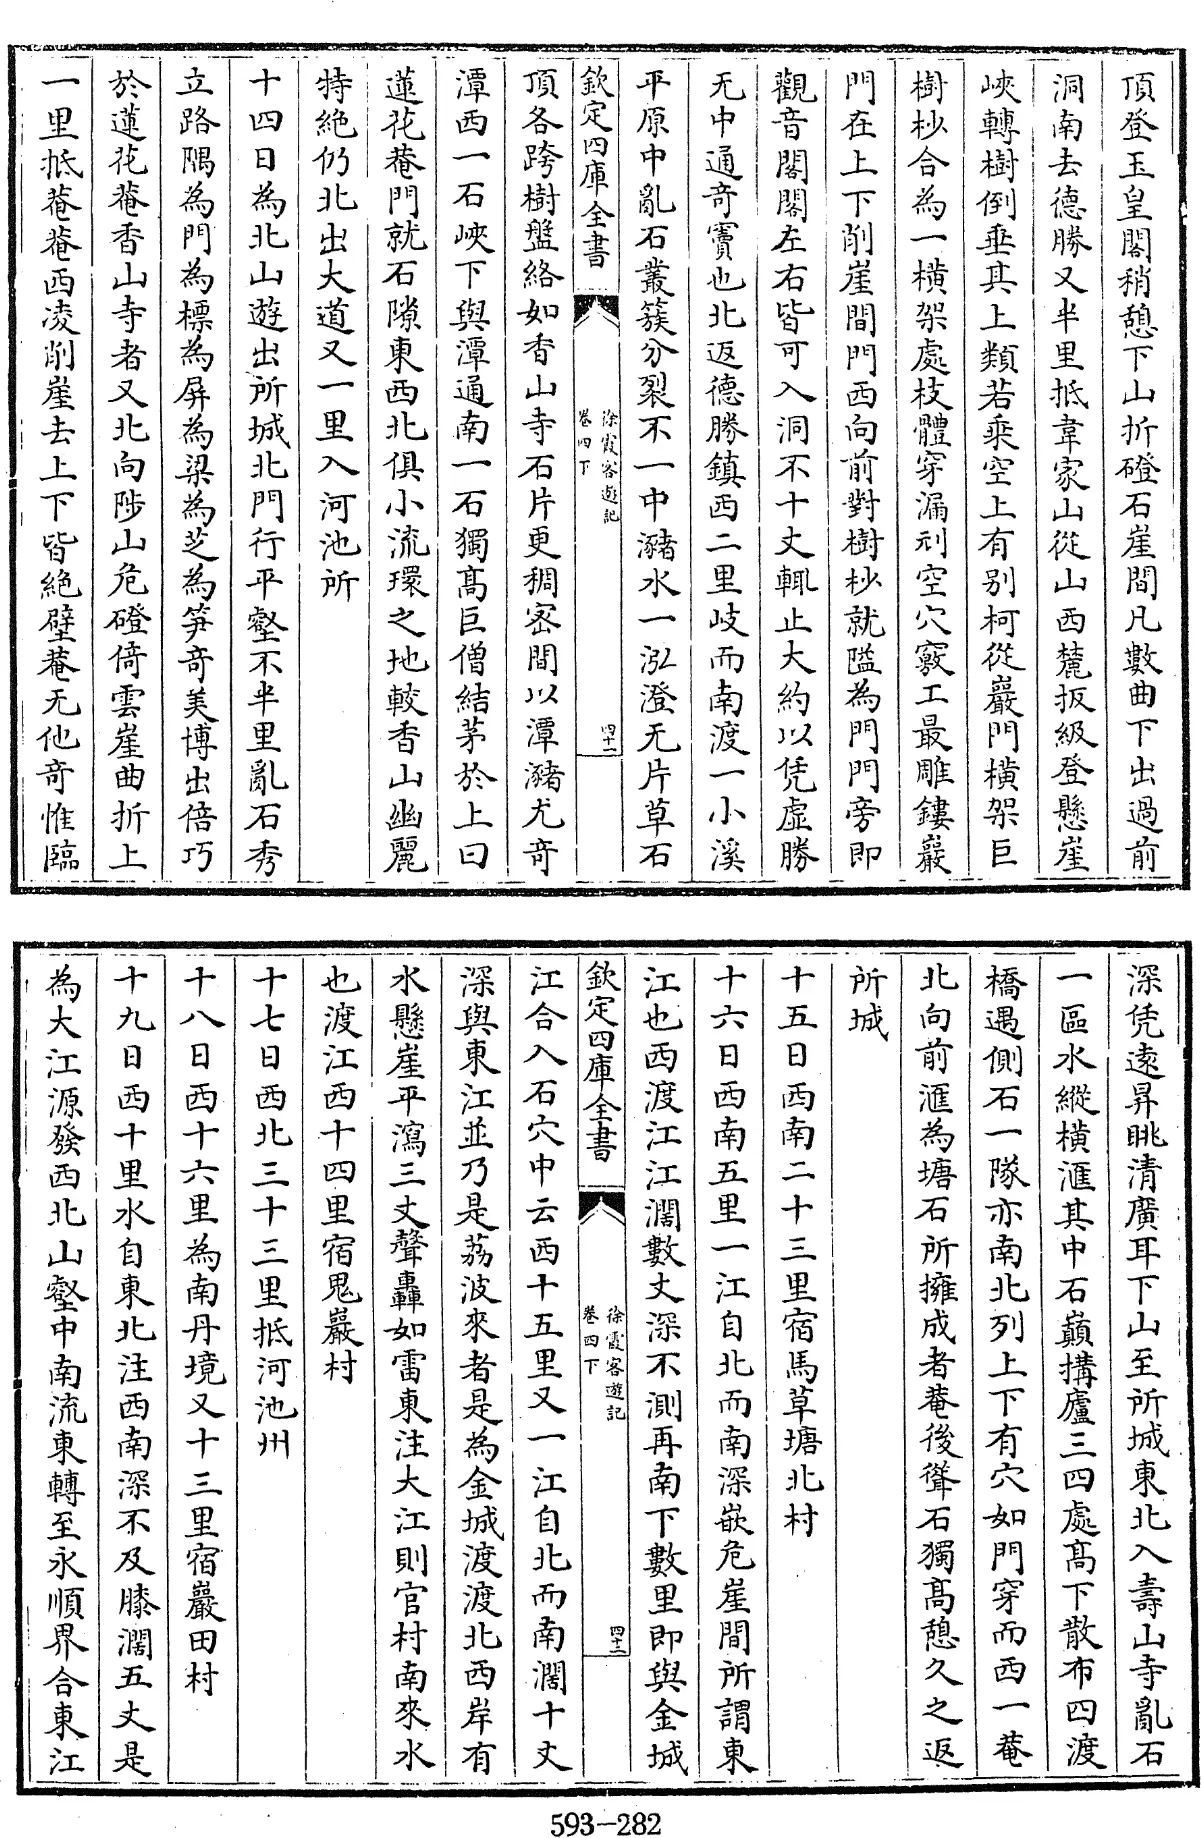 頂登玉皇閣稍憩下山折磴石崖間凡數曲下出過前
洞南去德勝又半里抵韋家山從山西麓扳級登懸崖
峽轉樹倒垂其上類若乘空上有别柯從巖門橫架巨
樹杪合為一橫架處枝體穿漏刓空穴竅工最雕鏤巖
門在上下削崖間門西向前對樹杪就隘為門門旁即
觀音閣閣左右皆可入洞不十丈輒止大約以凭虛勝
无中通奇竇也北返德勝鎮西二里岐而南渡一小溪
平原中亂石叢簇分裂不一中瀦水一泓澄无片草石
欽定四庫全書
徐霞客遊記
卷四下
四十一
頂各跨樹盤絡如香山寺石片更稠宻間以潭瀦尤奇
潭西一石峽下與潭通南一石獨高巨僧結茅於上曰
蓮花菴門就石隙東西北俱小流環之地較香山幽麗
特絶仍北出大道又一里入河池所
十四日為北山遊出所城北門行平壑不半里亂石秀
立路隅為門為標為屏為梁為芝為笋奇美博出倍巧
於蓮花菴香山寺者又北向陟山危磴倚雲崖曲折上
一里抵菴菴西凌削崖去上下皆絶壁菴无他奇惟臨
深凭遠昇眺清廣耳下山至所城東北入壽山寺亂石
一區水縱橫滙其中石巔搆廬三四處高下散布四渡
橋遇側石一隊亦南北列上下有穴如門穿而西一菴
北向前滙為塘石所擁成者菴後聳石獨高憩久之返
所城
十五日西南二十三里宿馬草塘北村
十六日西南五里一江自北而南深嵌危崖間所謂東
江也西渡江江濶數丈深不測再南下數里即與金城
欽定四庫全書
徐霞客遊記
卷四下
四十二
江合入石穴中云西十五里又一江自北而南濶十丈
深與東江並乃是荔波來者是為金城渡渡北西岸有
水懸崖平瀉三丈聲轟如雷東注大江則官村南來水
也渡江西十四里宿鬼巖村
十七日西北三十三里抵河池州
十八日西十六里為南丹境又十三里宿巖田村
十九日西十里水自東北注西南深不及膝濶五丈是
為大江源發西北山壑中南流東轉至永順界合東江
593-282